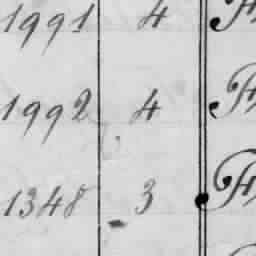 1991 4
1992 4
1348 3